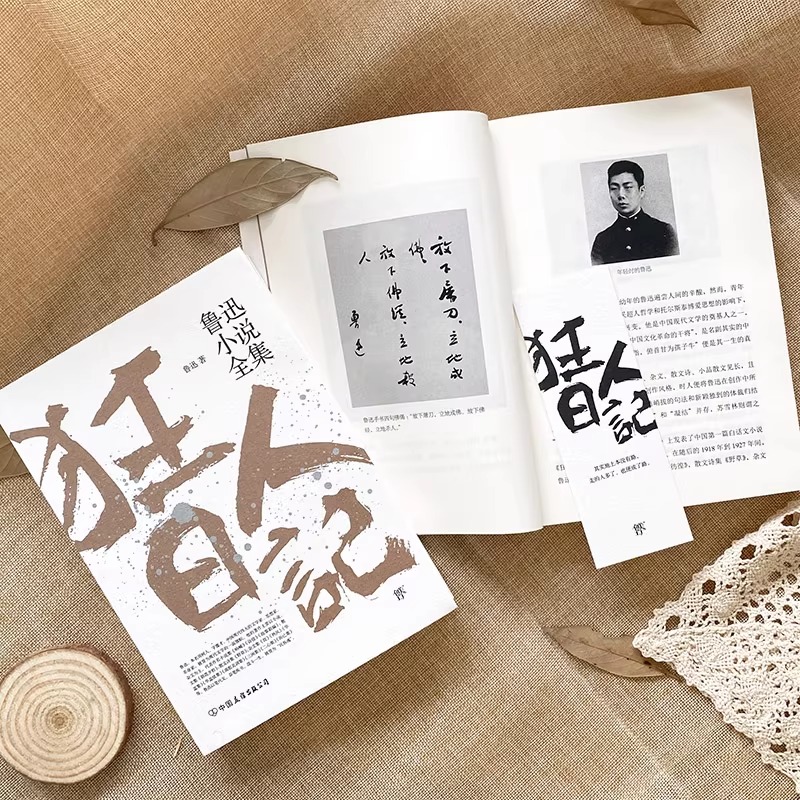 鲁迅
小说
全集
鲁迅 著
狂人
日記
中国友谊出版公司
放下屠刀、立地成
佛
放下佛经、立地殺
人
魯迅
鲁迅手书四句佛偈:"放下屠刀,立地成佛。放下佛
经,立地杀人。"
年轻时的鲁迅
幼年的鲁迅遍尝人间的辛酸,然而,青年
超人哲学和托尔斯泰博爱思想的影响下,
变。他是中国现代文学的奠基人之一,
中国文化革命的干将",是名副其实的中
俯首甘为孺子牛"便是其一生的真
杂文、散文诗、小品散文见长,且
创作风格。时人便将鲁迅在创作所
峭拔的句法和新颖独到的体裁归结
和"凝结"并存,苏雪林则谓之
上发表了中国第一篇白话文小说
在随后的 1918 年到 1927 年间,
彷徨》、散文诗集《野草》、杂文
狂人
日記
其实地上本没有路,
走的人多了,也便成了路。